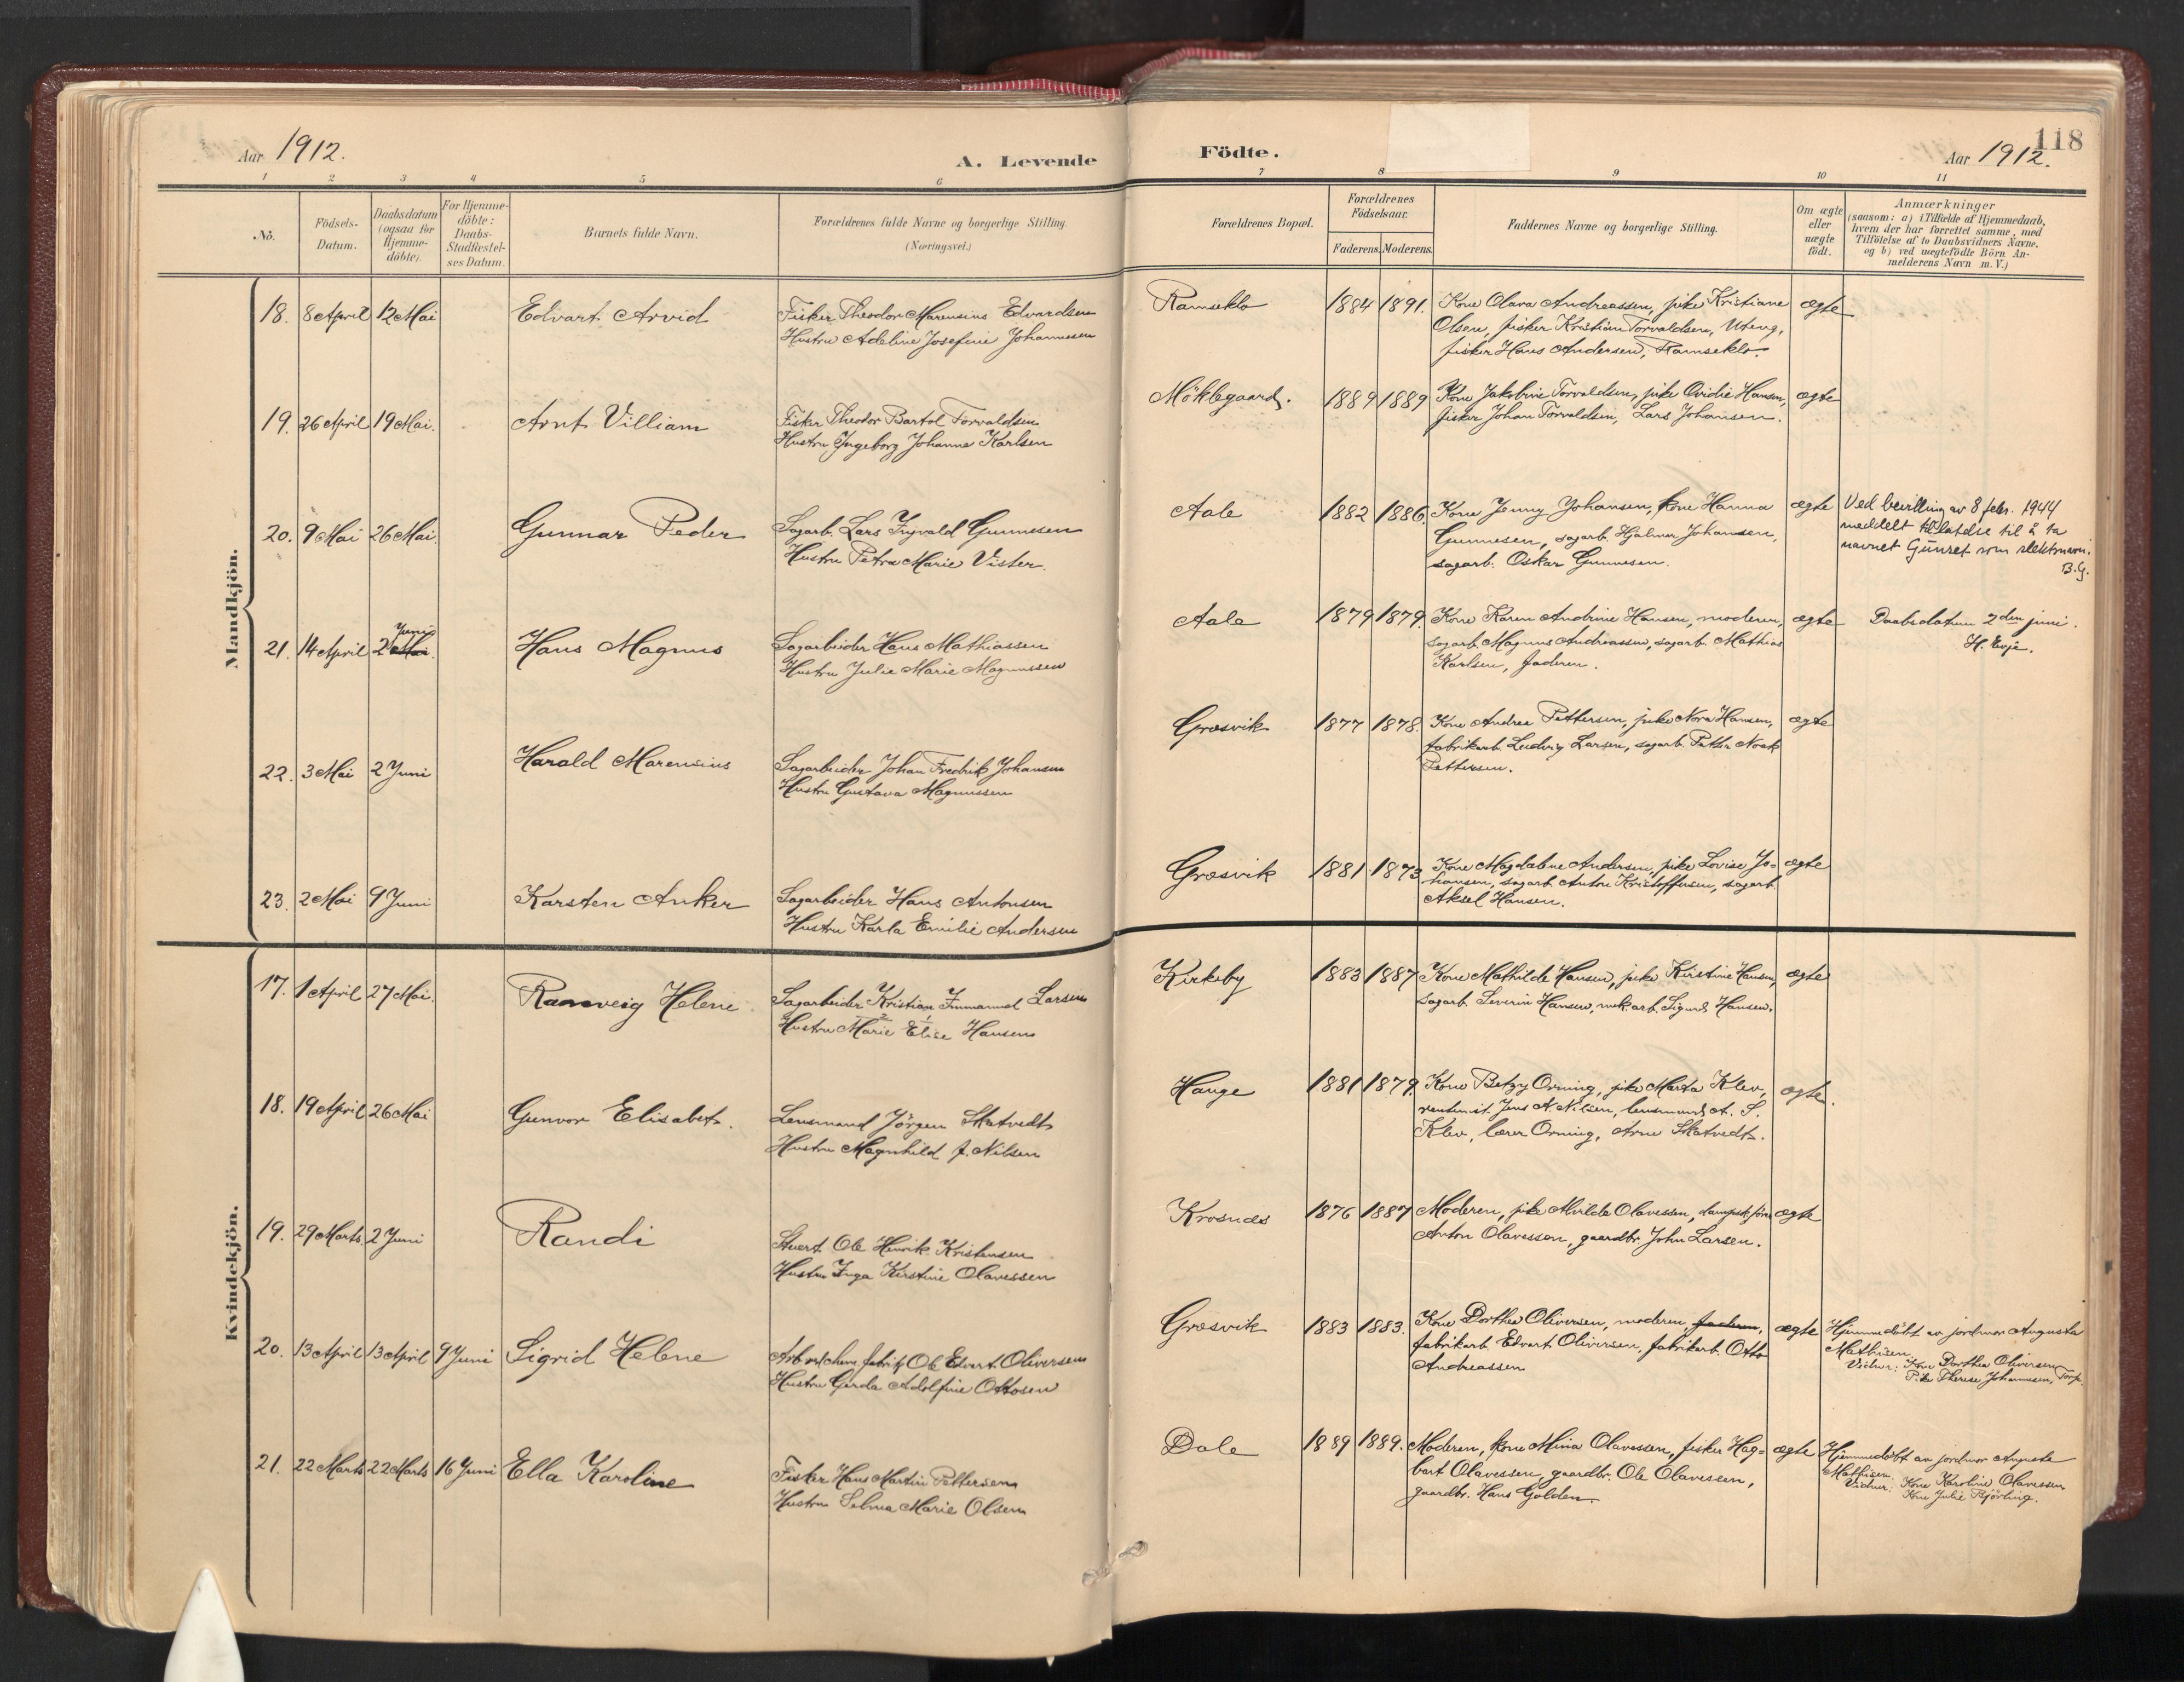 118
Aar 1912.
A. Levende Födte.
Aar 1912.
1 2 3 4 5 6 7 8 9 10 11
No.
Födsels-
Datum.
Daabsdatum
(ogsaa for
Hjemme-
döbte).
For Hjemme-
döbte:
Daabs-
Stadfæstel-
ses Datum.
Barnets fulde Navn.
Forældrenes fulde Navne og borgerlige Stilling.
(Næringsvei.)
Forældrenes Bopæl.
Forældrenes
Födselsaar.
Faderens. Moderens.
Faddernes Navne og borgerlige Stilling.
Om ægte
eller
uægte
födt.
Anmærkninger
(saasom: a) i Tilfælde af Hjemmedaab,
hvem der har forrettet samme, med
Tilföielse af to Daabsvidners Navne.
og b) ved uægtefödte Börn An-
melderens Navn m. V.)
Mandkjön.
18. 8 April 12 Mai Edvart Arvid
Fisker Theodor Marensius Edvardsen
Hustru Adeline Josefine Johannesen
Ramseklo 1884 1891.
Kone Olava Andreassen, pike Kristiane
Olsen, fisker Kristian Torvaldsen, Uteng,
fisker Hans Andersen, Ramseklo.
ægte
19. 26 April 19 Mai. Arnt Villiam
Fisker Theodor Bartol Torvaldsen
Hustru Ingeborg Johanne Karlsen
Möklegaard. 1889 1889
Kone Jakobine Torvaldsen, pike Ovidie Hansen,
fisker Johan Torvaldsen, Lars Johansen.
ægte
20. 9 Mai 26 Mai. Gunnar Peder
Sagarb. Lars Ingvald Gunnesen
Hustru Petra Marie Vister.
Aale 1882 1886.
Kone Jenny Johansen, kone Hanna
Gunnesen, sagarb. Hjalmar Johansen,
sagarb. Oskar Gunnesen.
ægte
Ved bevilling av 8 febr. 1944
meddelt tillatelse til å ta
navnet Gunset som slektsnavn.
B.G.
21. 14 April 2 Juni Mai. Hans Magnus
Sagarbeider Hans Mathiassen
Hustru Julie Marie Magnussen
Aale 1879 1879.
Kone Karen Andrine Hansen, moderen,
sagarb. Magnus Andreassen, sagarb. Mathias
Karlsen, faderen.
ægte
Daabsdatum 2den juni.
H. Evje.
22. 3 Mai 2 Juni Harald Marensius
Sagarbeider Johan Fredrik Johansen
Hustru Gustava Magnussen
Græsvik 1877 1878.
Kone Andrea Pettersen, pike Nora Hansen,
fabrikarb. Ludvig Larsen, sagarb. Petter Noak
Pettersen.
ægte
23. 2 Mai 9 Juni Karsten Anker
Sagarbeider Hans Antonsen
Hustru Karla Emilie Andersen
Græsvik 1881 1873
Kone Magdalene Andersen, pike Lovise Jo-
hansen, sagarb. Anton Kristoffersen, sagarb.
Aksel Hansen.
ægte
Kvindekjön.
17. 1 April 27 Mai. Ranveig Helene
Sagarbeider Kristian Immanuel Larsen
2 1
Hustru Marie Elise Hansen
Kirkeby 1883 1887
Kone Mathilde Hansen, pike Kristine Hansen,
sagarb. Severin Hansen, mek. arb. Sigurd Hansen.
ægte
18. 19 April 26 Mai Gunvor Elisabet.
Lensmand Jörgen Skatvedt
Hustru Magnhild f. Nilsen
Hauge 1881 1879.
Kone Betzy Orning, pike Marta Klev,
rentenist Jens A. Nilsen, lensmand A. S.
Klev, lærer Orning, Arne Skatvedt.
ægte.
19. 29 Marts. 2 Juni Randi
Stuert Ole Henrik Kristensen
Hustru Inga Kirstine Olavessen
Krosnæs 1876 1887
Moderen, pike Alvilde Olavessen, dampsk.förer
Anton Olavessen, gaardbr. John Larsen.
ægte
20. 13 April 13 April 9 Juni Sigrid Helene
Arb. v. chem. fabrik Ole Edvart Oliversen
Hustru Gerda Adolfine Ottosen
Græsvik 1883 1883.
Kone Dorthea Oliversen, moderen, faderen,
fabrikarb. Edvart Oliversen, fabrikarb. Otto
Andreassen
ægte
Hjemmedöbt av jordmor Augusta
Mathisen.
Vidner: Kone Dorthea Oliversen
Pike Therese Johannesen, Torp.
21. 22 Marts 22 Marts 16 Juni Ella Karoline
Fisker Hans Martin Pettersen
Hustru Selma Marie Olsen
Dale 1889 1889.
Moderen, kone Mina Olavessen, fisker Hag-
bart Olavessen, gaardbr. Ole Olavessen,
gaardbr. Hans Golden.
ægte
Hjemmedöbt av jordmor Auguste
Mathisen.
Vidner: Kone Karoline Olavessen
Kone Julie Björling.